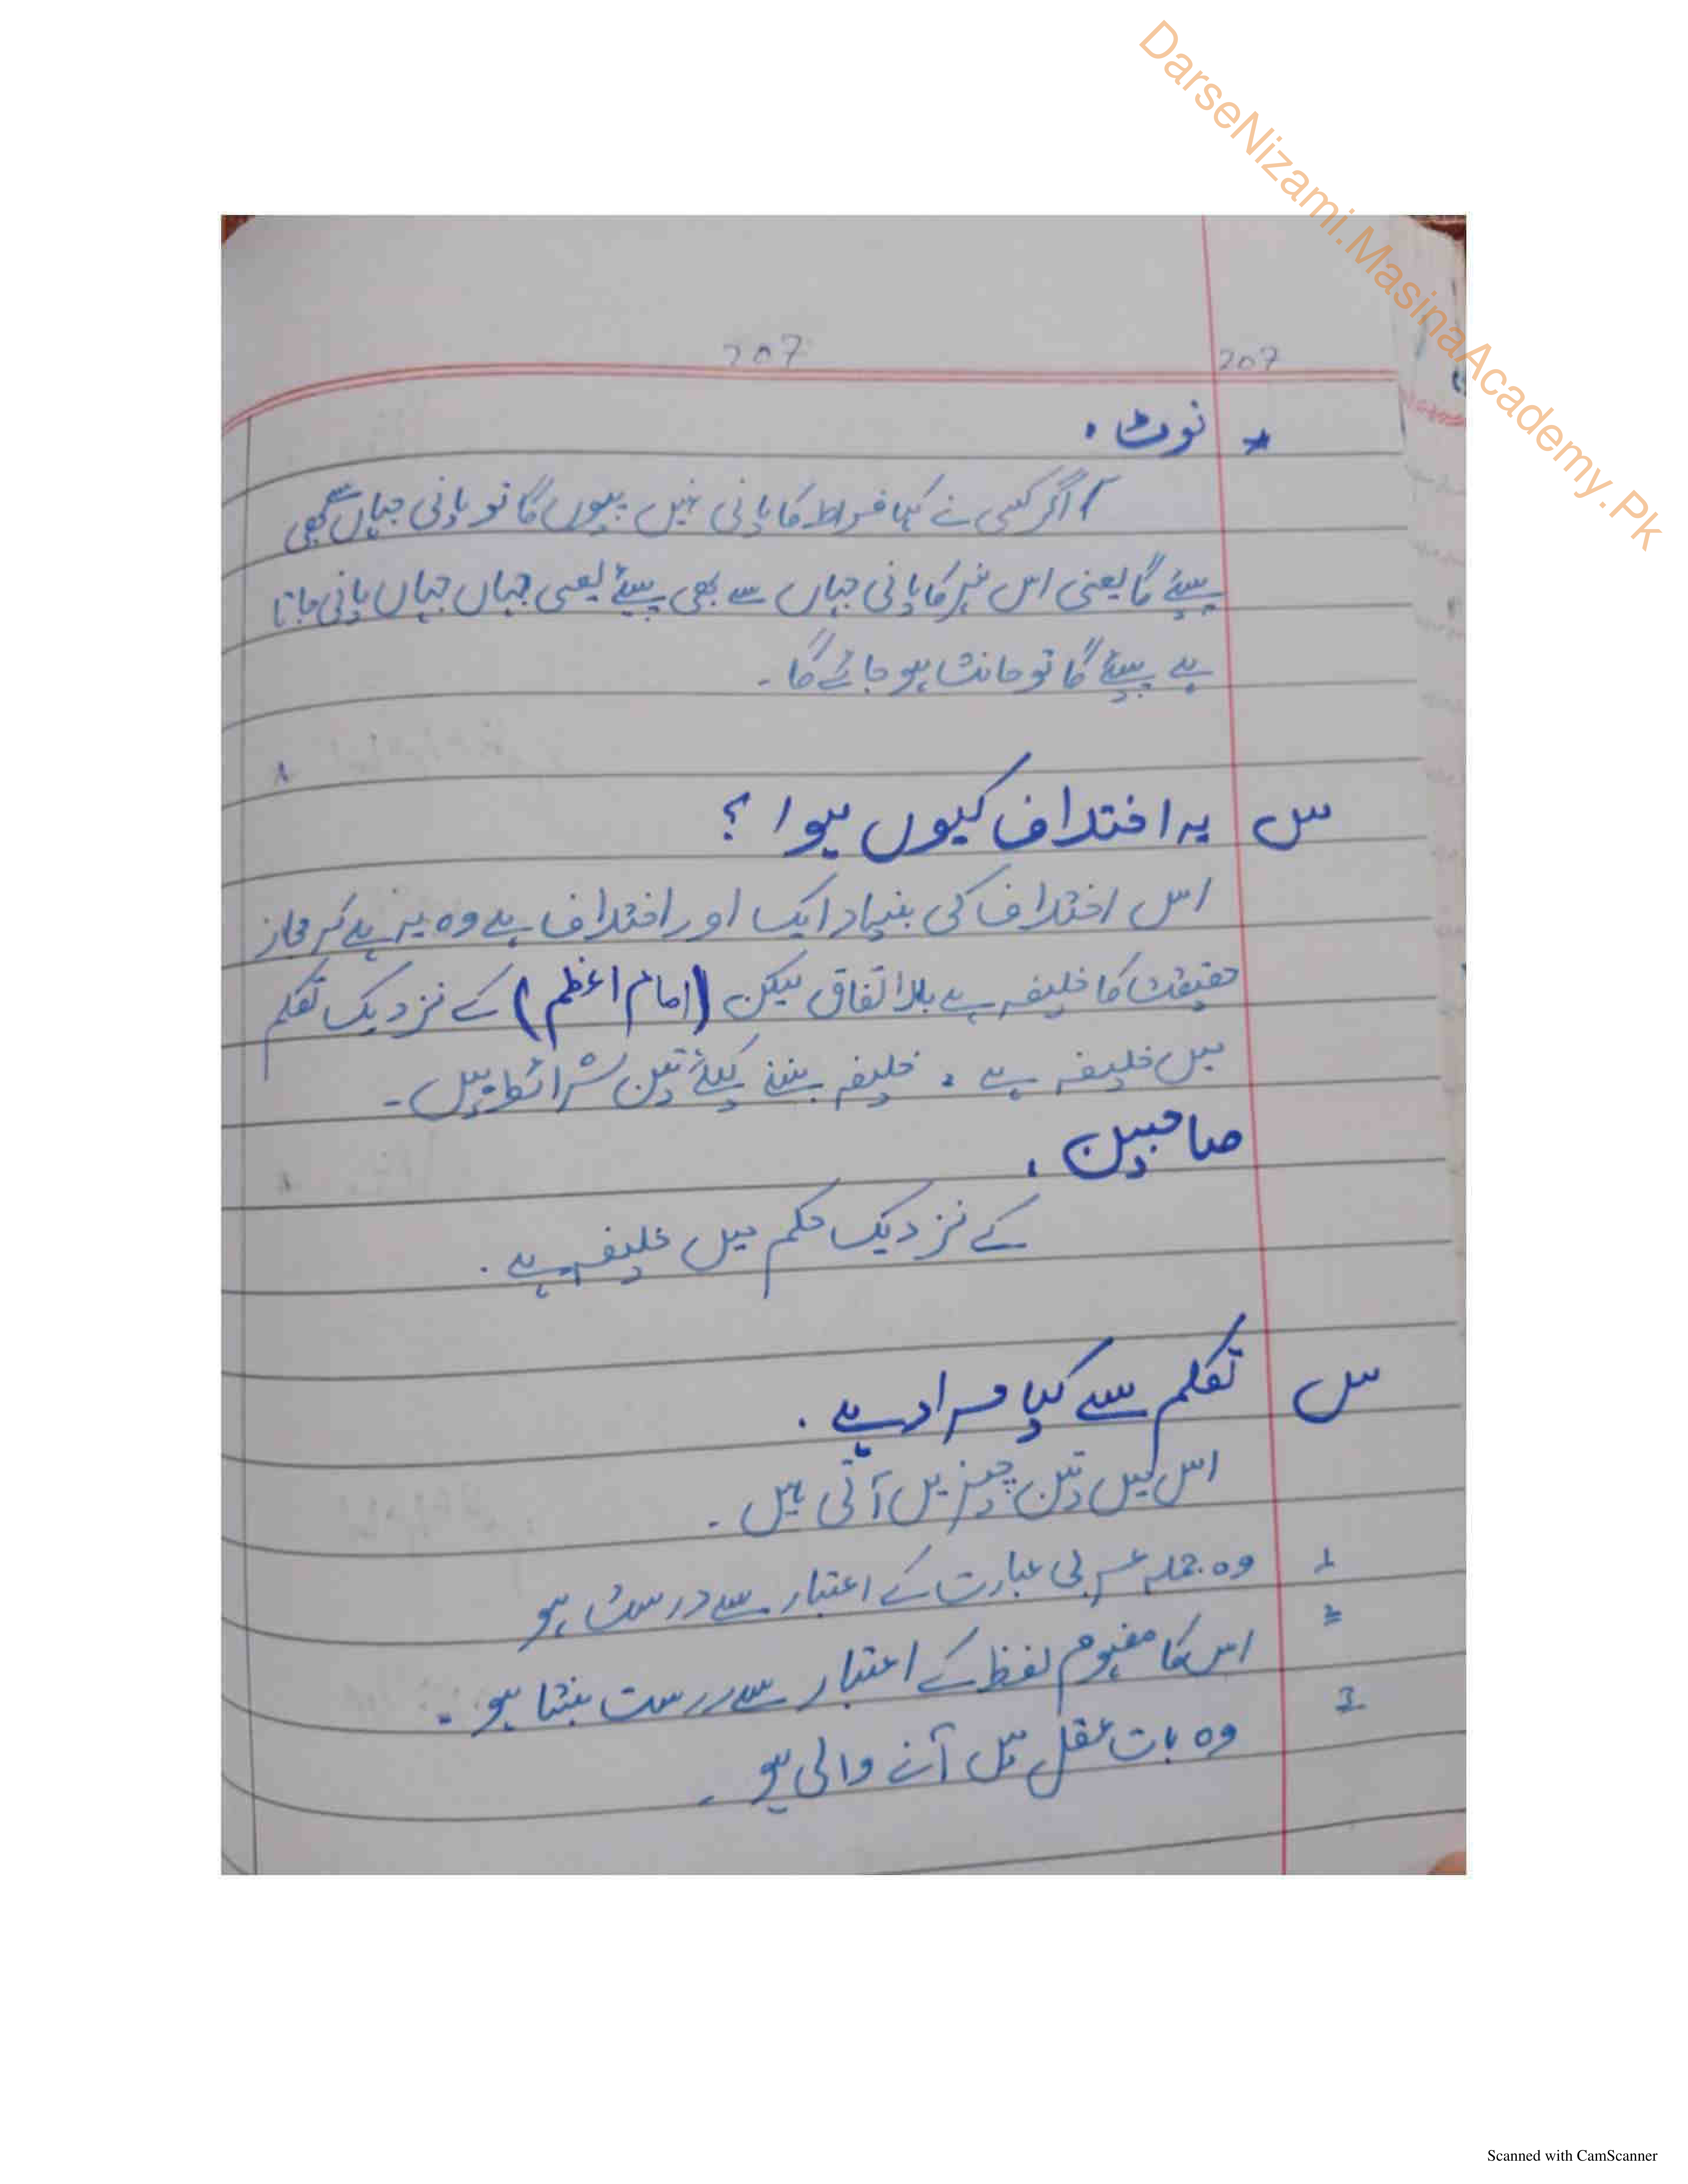 DarseNizami.MasinaAcademy.Pk
207 207
* نوٹ .
اگر کسی نے کہا فراط کا پانی نہیں پیوں گا تو پانی جہاں سے بھی
پیئے گا یعنی اس نہر کا پانی جہاں سے بھی پیئے یعنی جہاں جہاں پانی جاتا
ہے پیئے گا تو حانث ہو جائے گا ۔
س یہ اختلاف کیوں ہوا ؟
اس اختلاف کی بنیاد ایک اور اختلاف ہے وہ یہ ہے کہ مجاز
حقیقت کا خلیفہ ہے بلا اتفاق لیکن (امام اعظم) کے نزدیک تکلم
میں خلیفہ ہے . خلیفہ بننے کیلئے تین شرائط ہیں ۔
صاحبین .
کے نزدیک حکم میں خلیفہ ہے .
س تکلم سے کیا مراد ہے .
اس میں تین چیزیں آتی ہیں ۔
1 وہ جملہ عربی عبارت کے اعتبار سے درست ہو
2 اس کا مفہوم لفظ کے اعتبار سے درست بنتا ہو ۔
3 وہ بات عقل میں آنے والی ہو ۔
Scanned with CamScanner